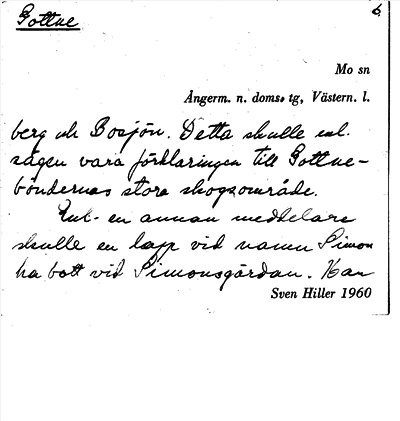 Gottne
6.
Mo sn
Ångerm. n. doms. tg, Västern. l.
berg och Bosjön. Detta skulle enl.
sägen vara förklaringen till Gottne-
böndernas stora skogsområde.
Enl. en annan meddelare
skulle en lapp vid namn Simon
ha bott vid Simonsgårdan. Han
Sven Hiller 1960